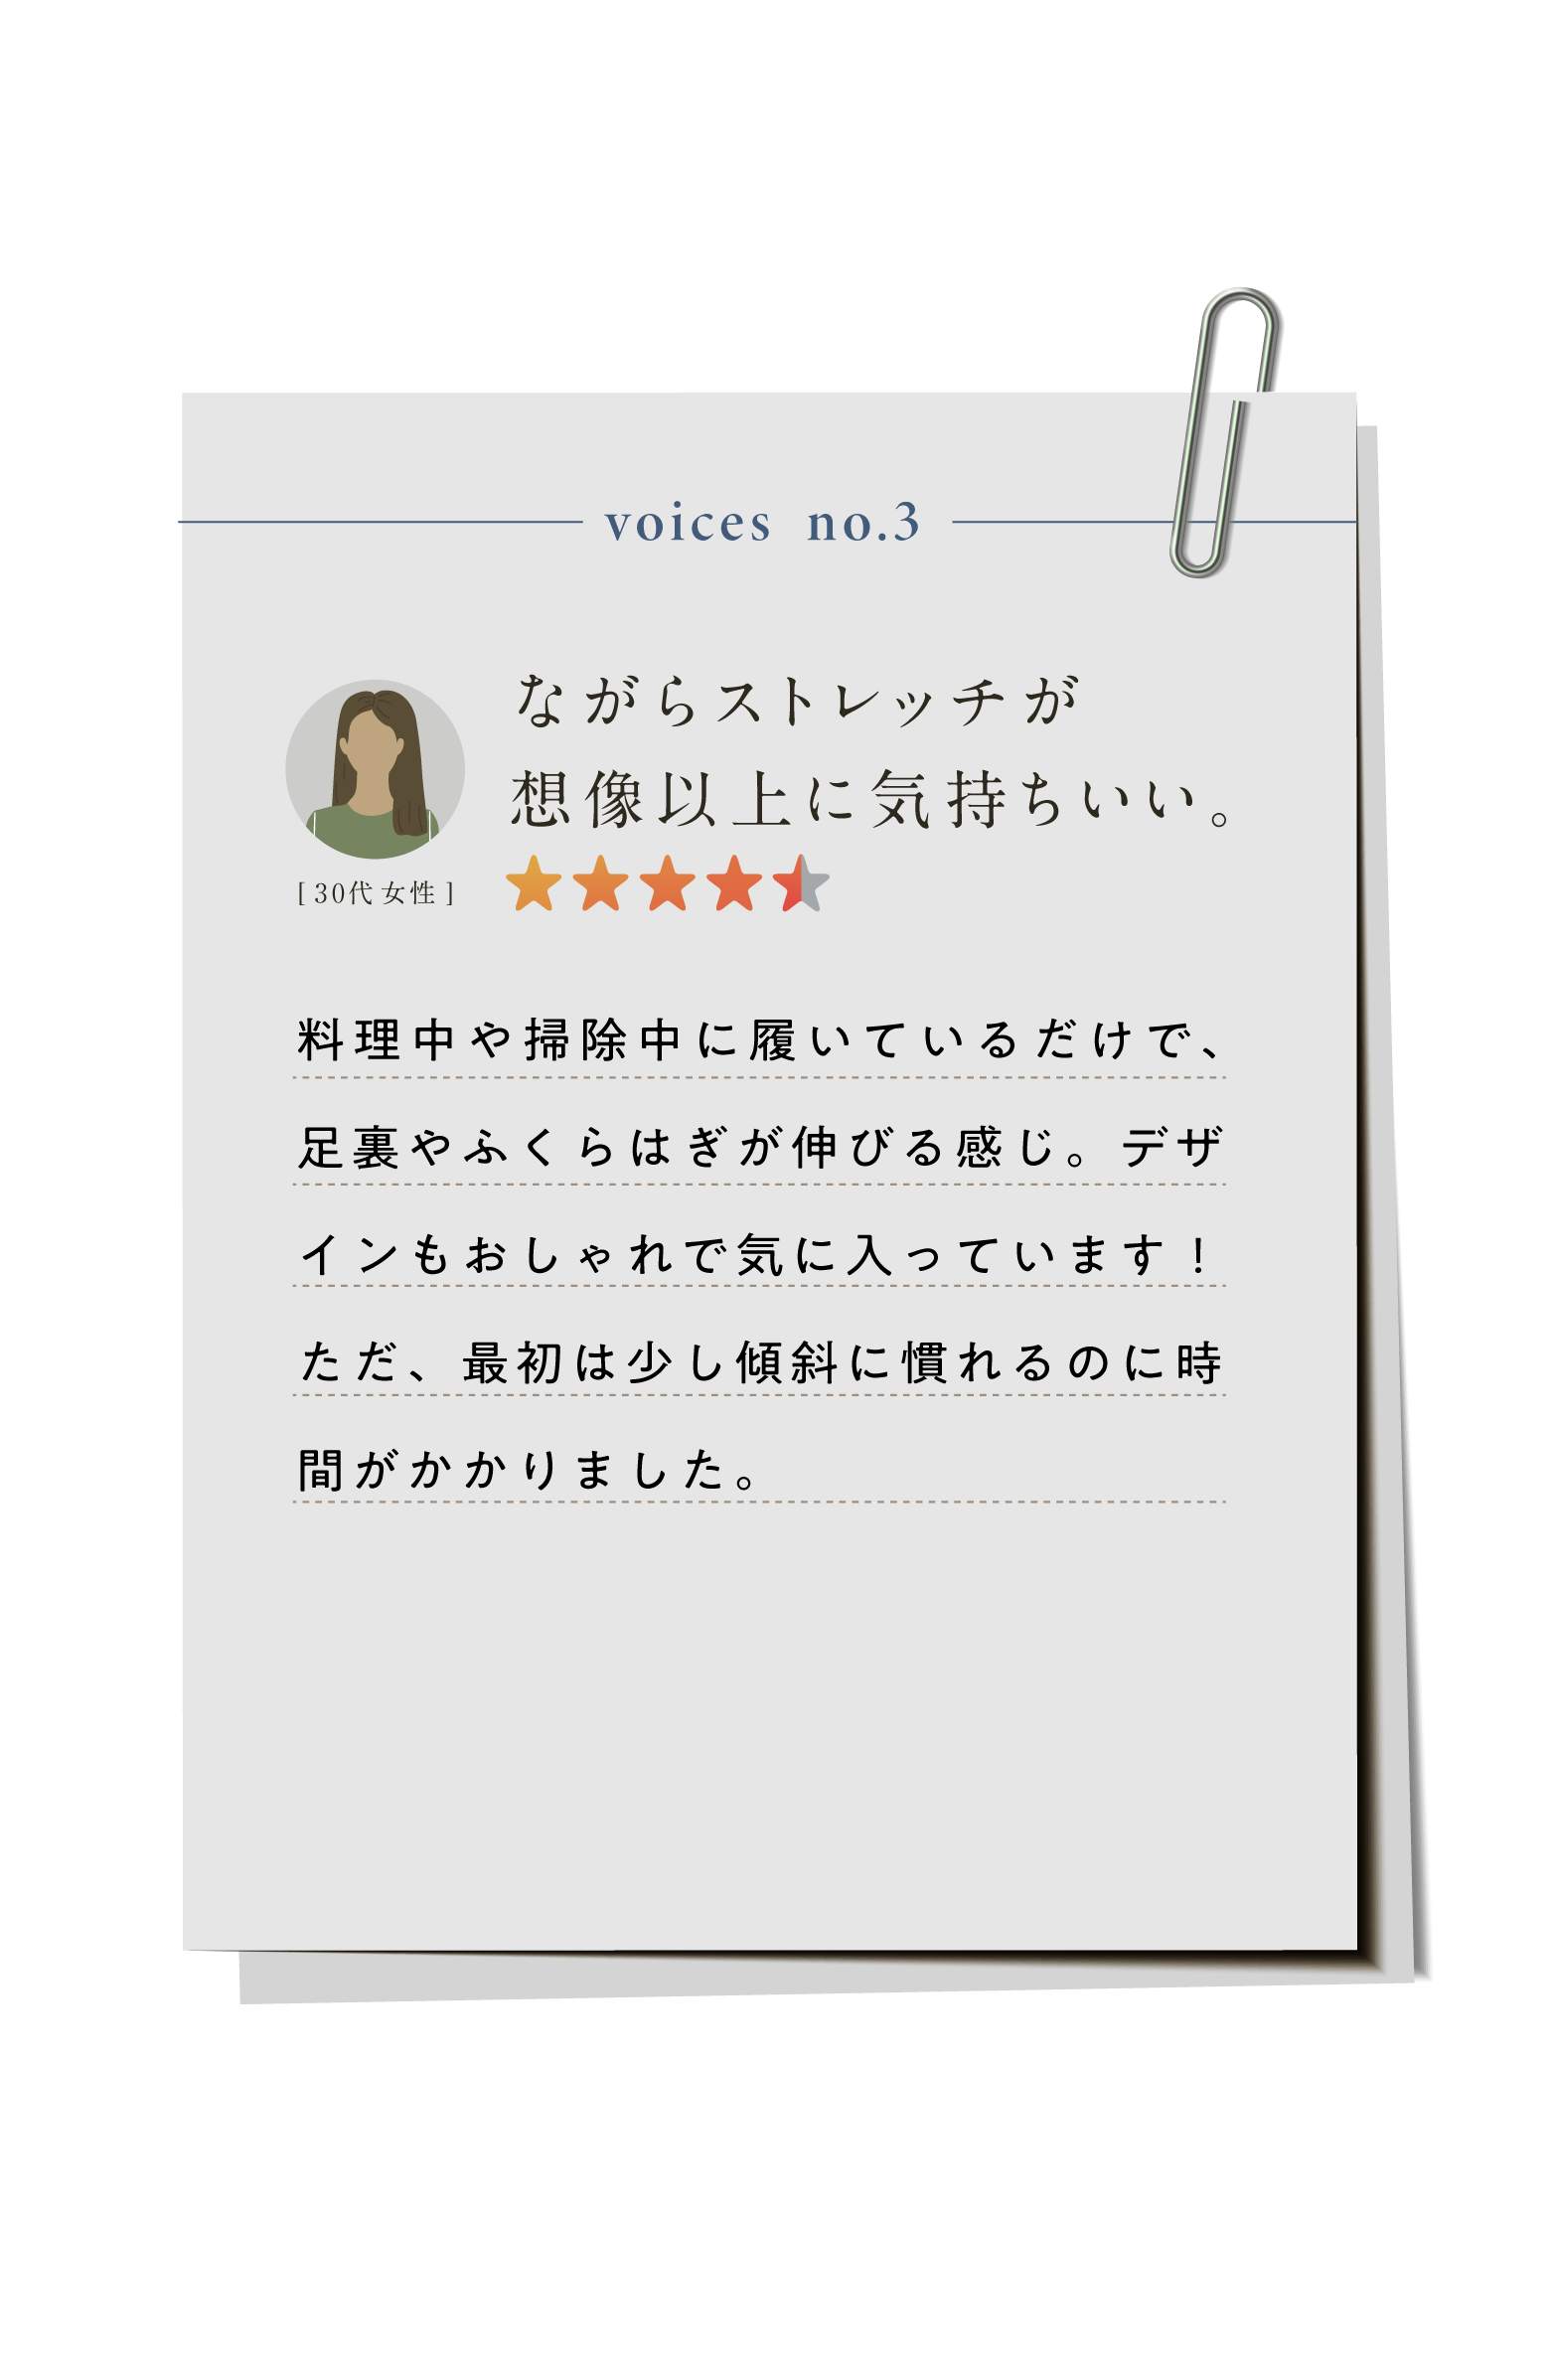 voices no.3
ながらストレッチが
想像以上に気持ちいい。
[ 30代 女性 ]
料理中や掃除中に履いているだけで、
足裏やふくらはぎが伸びる感じ。デザ
インもおしゃれで気に入っています！
ただ、最初は少し傾斜に慣れるのに時
間がかかりました。